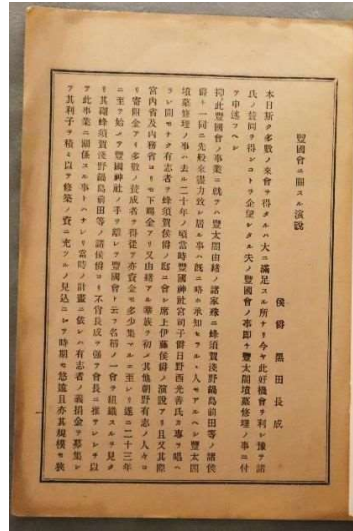 豐國會ニ關スル演說
侯爵　黑田長成
本日斯ク多數ノ來會ヲ得タルハ大ニ滿足スル所ナリ今ヤ此好機會ヲ利シ豫テ諸
氏ノ賛同ヲ得ンコトヲ企望シタル夫ノ豐國會ノ事卽チ豐太閤墳墓修理ノ事ニ付
テ申述フヘシ
抑此豐國會ノ事業ニ就テハ豐太閤由緖ノ諸家殊ニ蜂須賀淺野鍋島前田等ノ諸侯
爵ト一同ニ先般來盡力致シ居ル事ハ旣ニ略ホ承知セラルヽ人モアルヘシ豐太閤
墳墓修理ノ事ハ去ル二十年ノ頃當時豐國神社宮司子爵日野西光善氏カ專ラ唱ヘ
ラレ間モナク有志者ヲ蜂須賀侯爵ノ邸ニ會シ席上伊藤侯爵ノ演說アリ且又其際
宮內省及內務省ヨリモ下賜金アリ又由緖アル華族ヲ初メ其他朝野有志ノ人々ヨ
リ寄附金アリ多數ノ賛成者ヲ得從テ亦資金モ多少集マルニ至レリ遂ニ二十三年
ニ至リ始メテ豐國神社ノ手ヲ離レテ豐國會ト云フ名稱ノ一會ヲ組織スルヲ見タ
リ其砌蜂須賀淺野鍋島前田等ノ諸侯爵ヨリ不肖長成ヲ强テ會長ニ推サレシヲ以
テ此事業ニ關係スル事トハナレリ當時ノ計畫ニ依レハ有志者ノ義捐金ヲ募集シ
テ其利子ヲ積ミ以テ修築ノ資ニ充ツルノ見込ニシテ時期モ悠遠且亦其規模モ狹